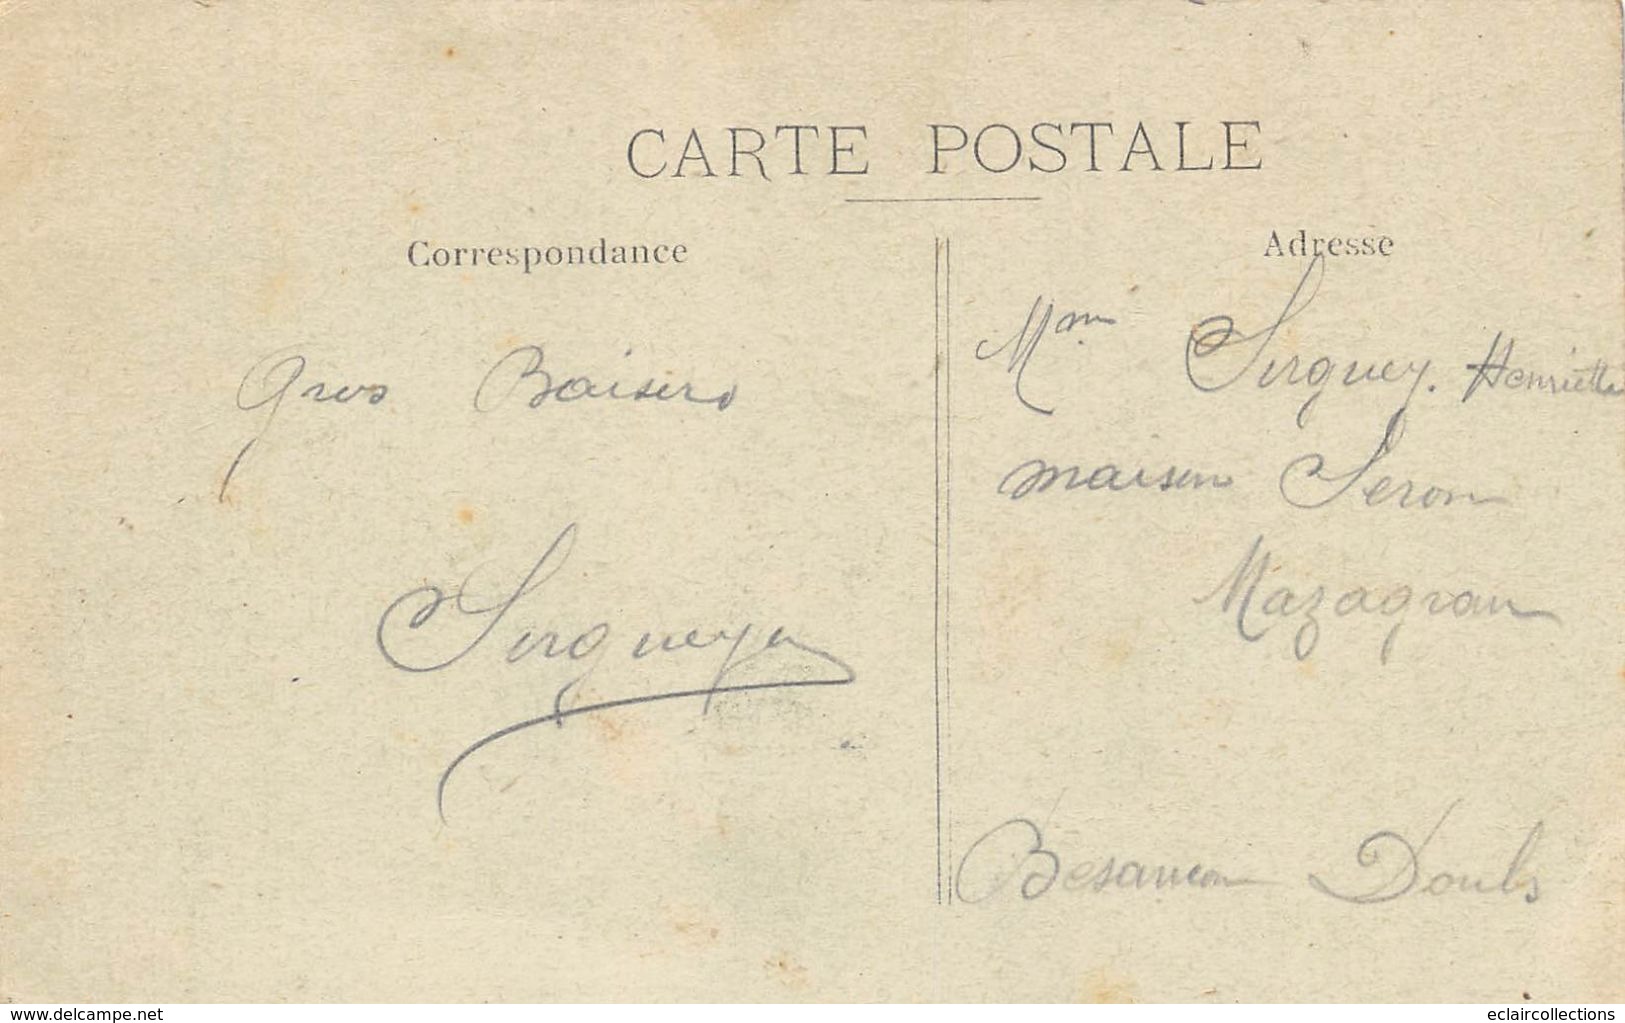 CARTE POSTALE
Correspondance
Adresse
Gros Baisers
Serguey
Mme Serguey. Henriette
maison Seron
Mazagran
Besancon Doubs
www.delcampe.net
eclaircollections